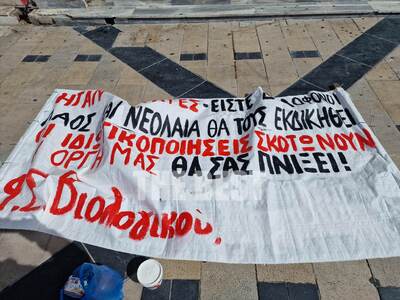 ΗΤΑΝ ΕΙΣΤΕ
ΛΑΟΣ ΚΑΙ ΝΕΟΛΑΙΑ ΘΑ ΤΟΥΣ ΕΚΔΙΚΗΘΕΙ
ΟΙ ΙΔΙΩΤΙΚΟΠΟΙΗΣΕΙΣ ΣΚΟΤΩΝΟΥΝ
ΟΡΓΗ ΜΑΣ ΘΑ ΣΑΣ ΠΝΙΞΕΙ!
Φ.Σ. Βιολογικού.